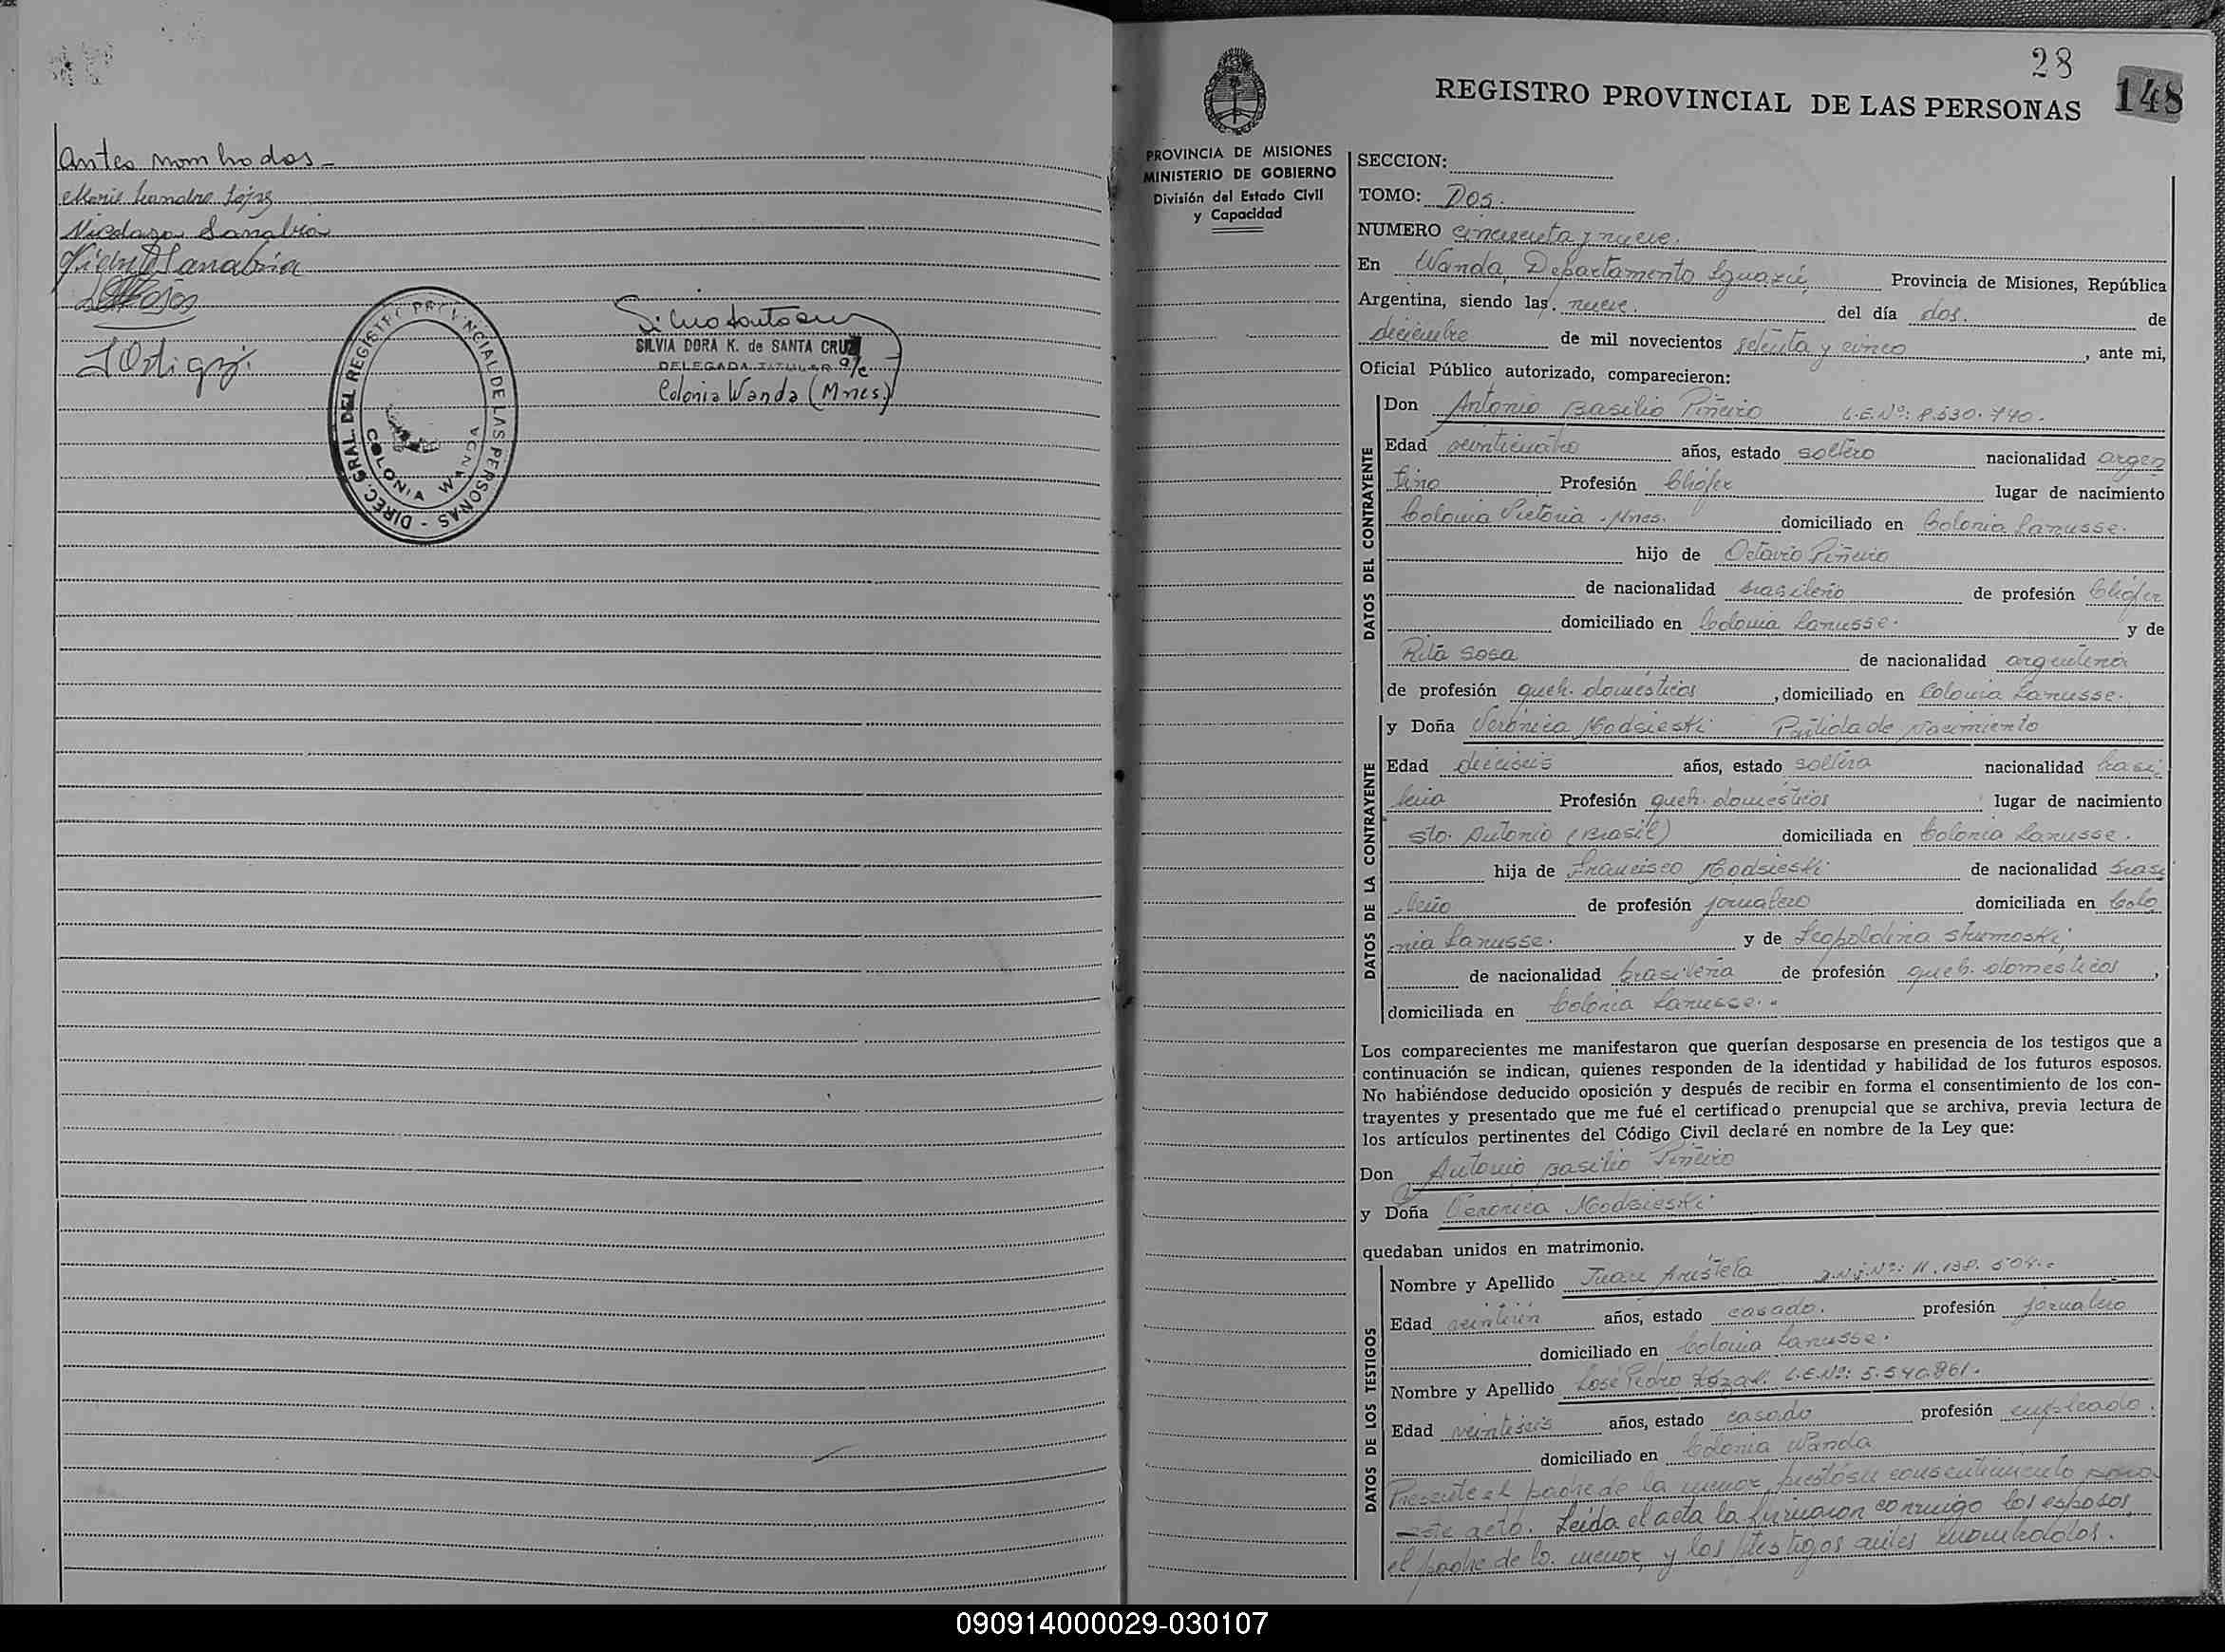 Antes nombrados_
Nicolasa Sanabria
Sanabria
SILVIA DORA K. de SANTA CRUZ
DELEGADA TITULAR a/c
Colonia Wanda (Mnes.)
DIREC. GRAL. DEL REGISTRO PROVINCIAL DE LAS PERSONAS -
COLONIA WANDA
28
148
REGISTRO PROVINCIAL DE LAS PERSONAS
PROVINCIA DE MISIONES
MINISTERIO DE GOBIERNO
División del Estado Civil
y Capacidad
SECCION:
TOMO: Dos.
NUMERO cincuenta y nueve.
En Wanda, Departamento Iguazú, Provincia de Misiones, República
Argentina, siendo las nueve. del día dos. de
diciembre de mil novecientos setenta y cinco, ante mi,
Oficial Público autorizado, comparecieron:
DATOS DEL CONTRAYENTE
Don Antonio Basilio Piñeiro L.E.Nº: 8.530.740.
Edad veinticuatro años, estado soltero nacionalidad argen
tino Profesión Chófer lugar de nacimiento
Colonia Victoria. Mnes. domiciliado en Colonia Lanusse.
hijo de Octavio Piñeiro
de nacionalidad brasileño de profesión Chófer
domiciliado en Colonia Lanusse. y de
Rita Sosa de nacionalidad argentina
de profesión queh. domésticos, domiciliado en Colonia Lanusse.
DATOS DE LA CONTRAYENTE
y Doña Verónica Modsieski Partida de Nacimiento
Edad dieciseis años, estado soltera nacionalidad brasi
leña Profesión queh. domésticos lugar de nacimiento
Sto. Antonio (Brasil) domiciliada en Colonia Lanusse.
hija de Francisco Modsieski de nacionalidad brasi
leño de profesión jornalero domiciliada en Colo
nia Lanusse. y de Leopoldina
de nacionalidad brasileña de profesión queh. domésticos,
domiciliada en Colonia Lanusse.
Los comparecientes me manifestaron que querían desposarse en presencia de los testigos que a
continuación se indican, quienes responden de la identidad y habilidad de los futuros esposos.
No habiéndose deducido oposición y después de recibir en forma el consentimiento de los con-
trayentes y presentado que me fué el certificado prenupcial que se archiva, previa lectura de
los artículos pertinentes del Código Civil declaré en nombre de la Ley que:
Don Antonio Basilio Piñeiro
y Doña Verónica Modsieski
quedaban unidos en matrimonio.
DATOS DE LOS TESTIGOS
Nombre y Apellido Juan D.N.I.Nº: 11.138.504.
Edad años, estado casado. profesión jornalero
domiciliado en Colonia Lanusse.
Nombre y Apellido José Pedro L.E.Nº: 5.540.861.
Edad veintiseis años, estado casado profesión empleado.
domiciliado en Colonia Wanda
Presente el padre de la menor, prestó su consentimiento para
este acto. Leída el acta la firmaron conmigo los esposos,
el padre de la menor, y los testigos antes nombrados.
090914000029-030107